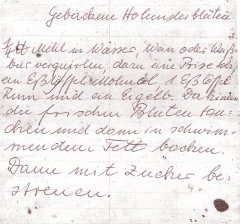 Gebackene Holunderblüten
Mehl in Wasser, Wein oder Weiß-
bier verquirlen, dazu eine Prise Salz,
ein Eßlöffel Mohnöl 1 Eßlöffel
Rum und ein Eigelb. Da hinein
die frischen Blüten tau-
chen und dann in schwim-
mendem Fett backen.
Dann mit Zucker be-
streuen.